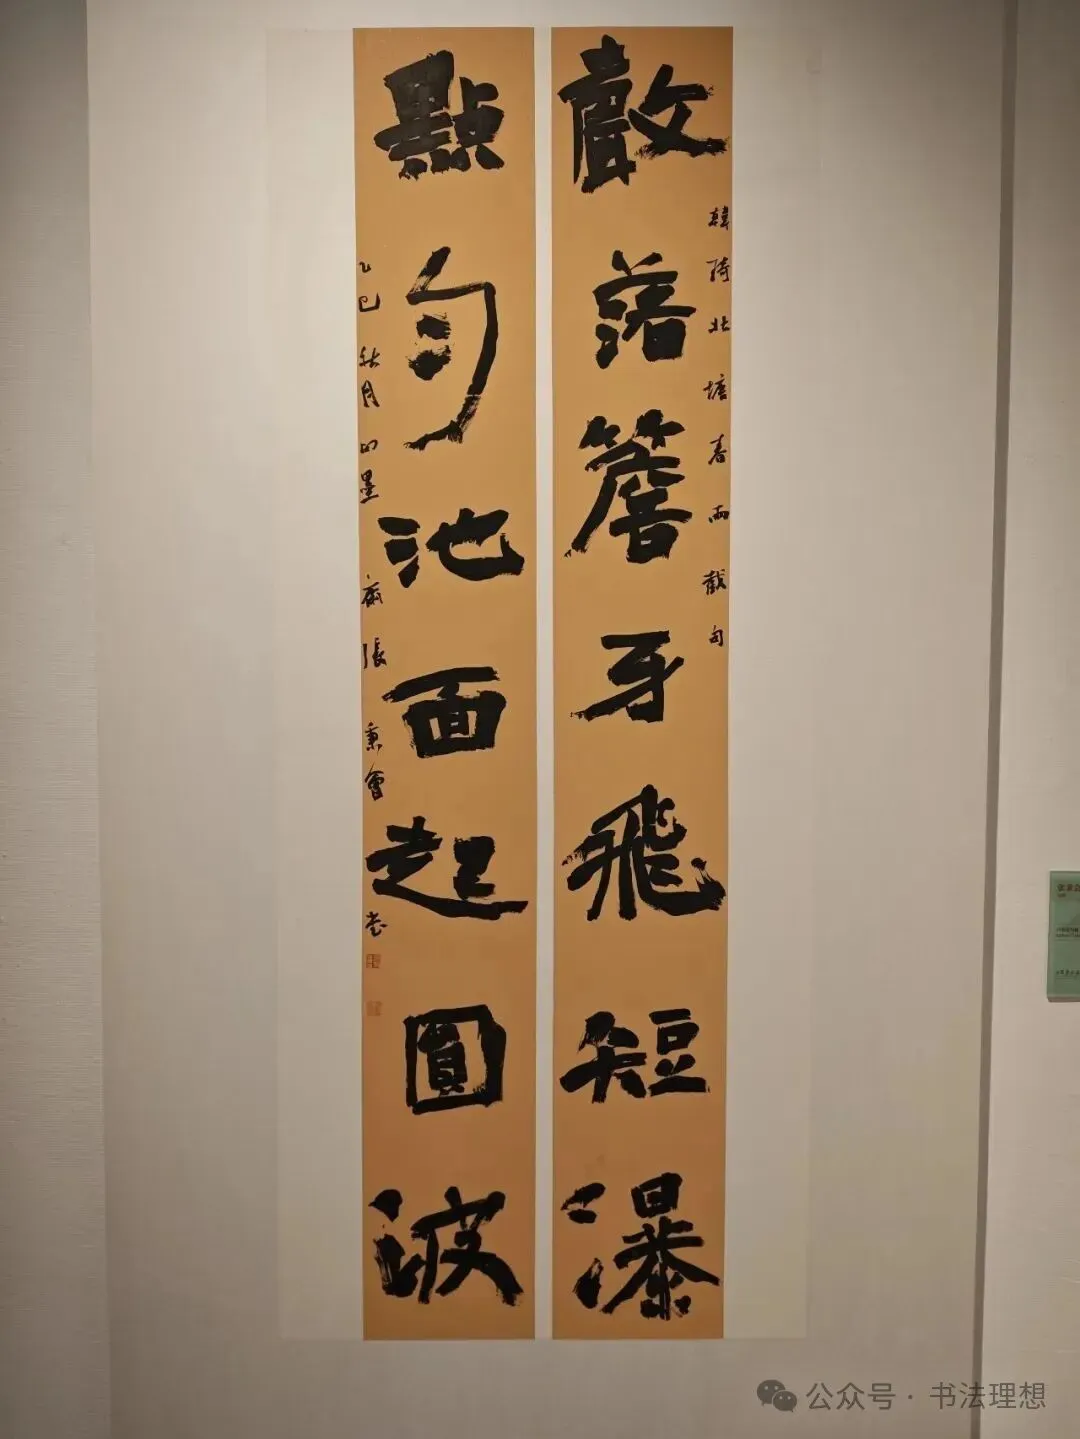 聲落簷牙飛短瀑
韓琦北塘春雨截句
點勻池面起圓波
乙巳秋月墨齋張秉會書
公众号·书法理想